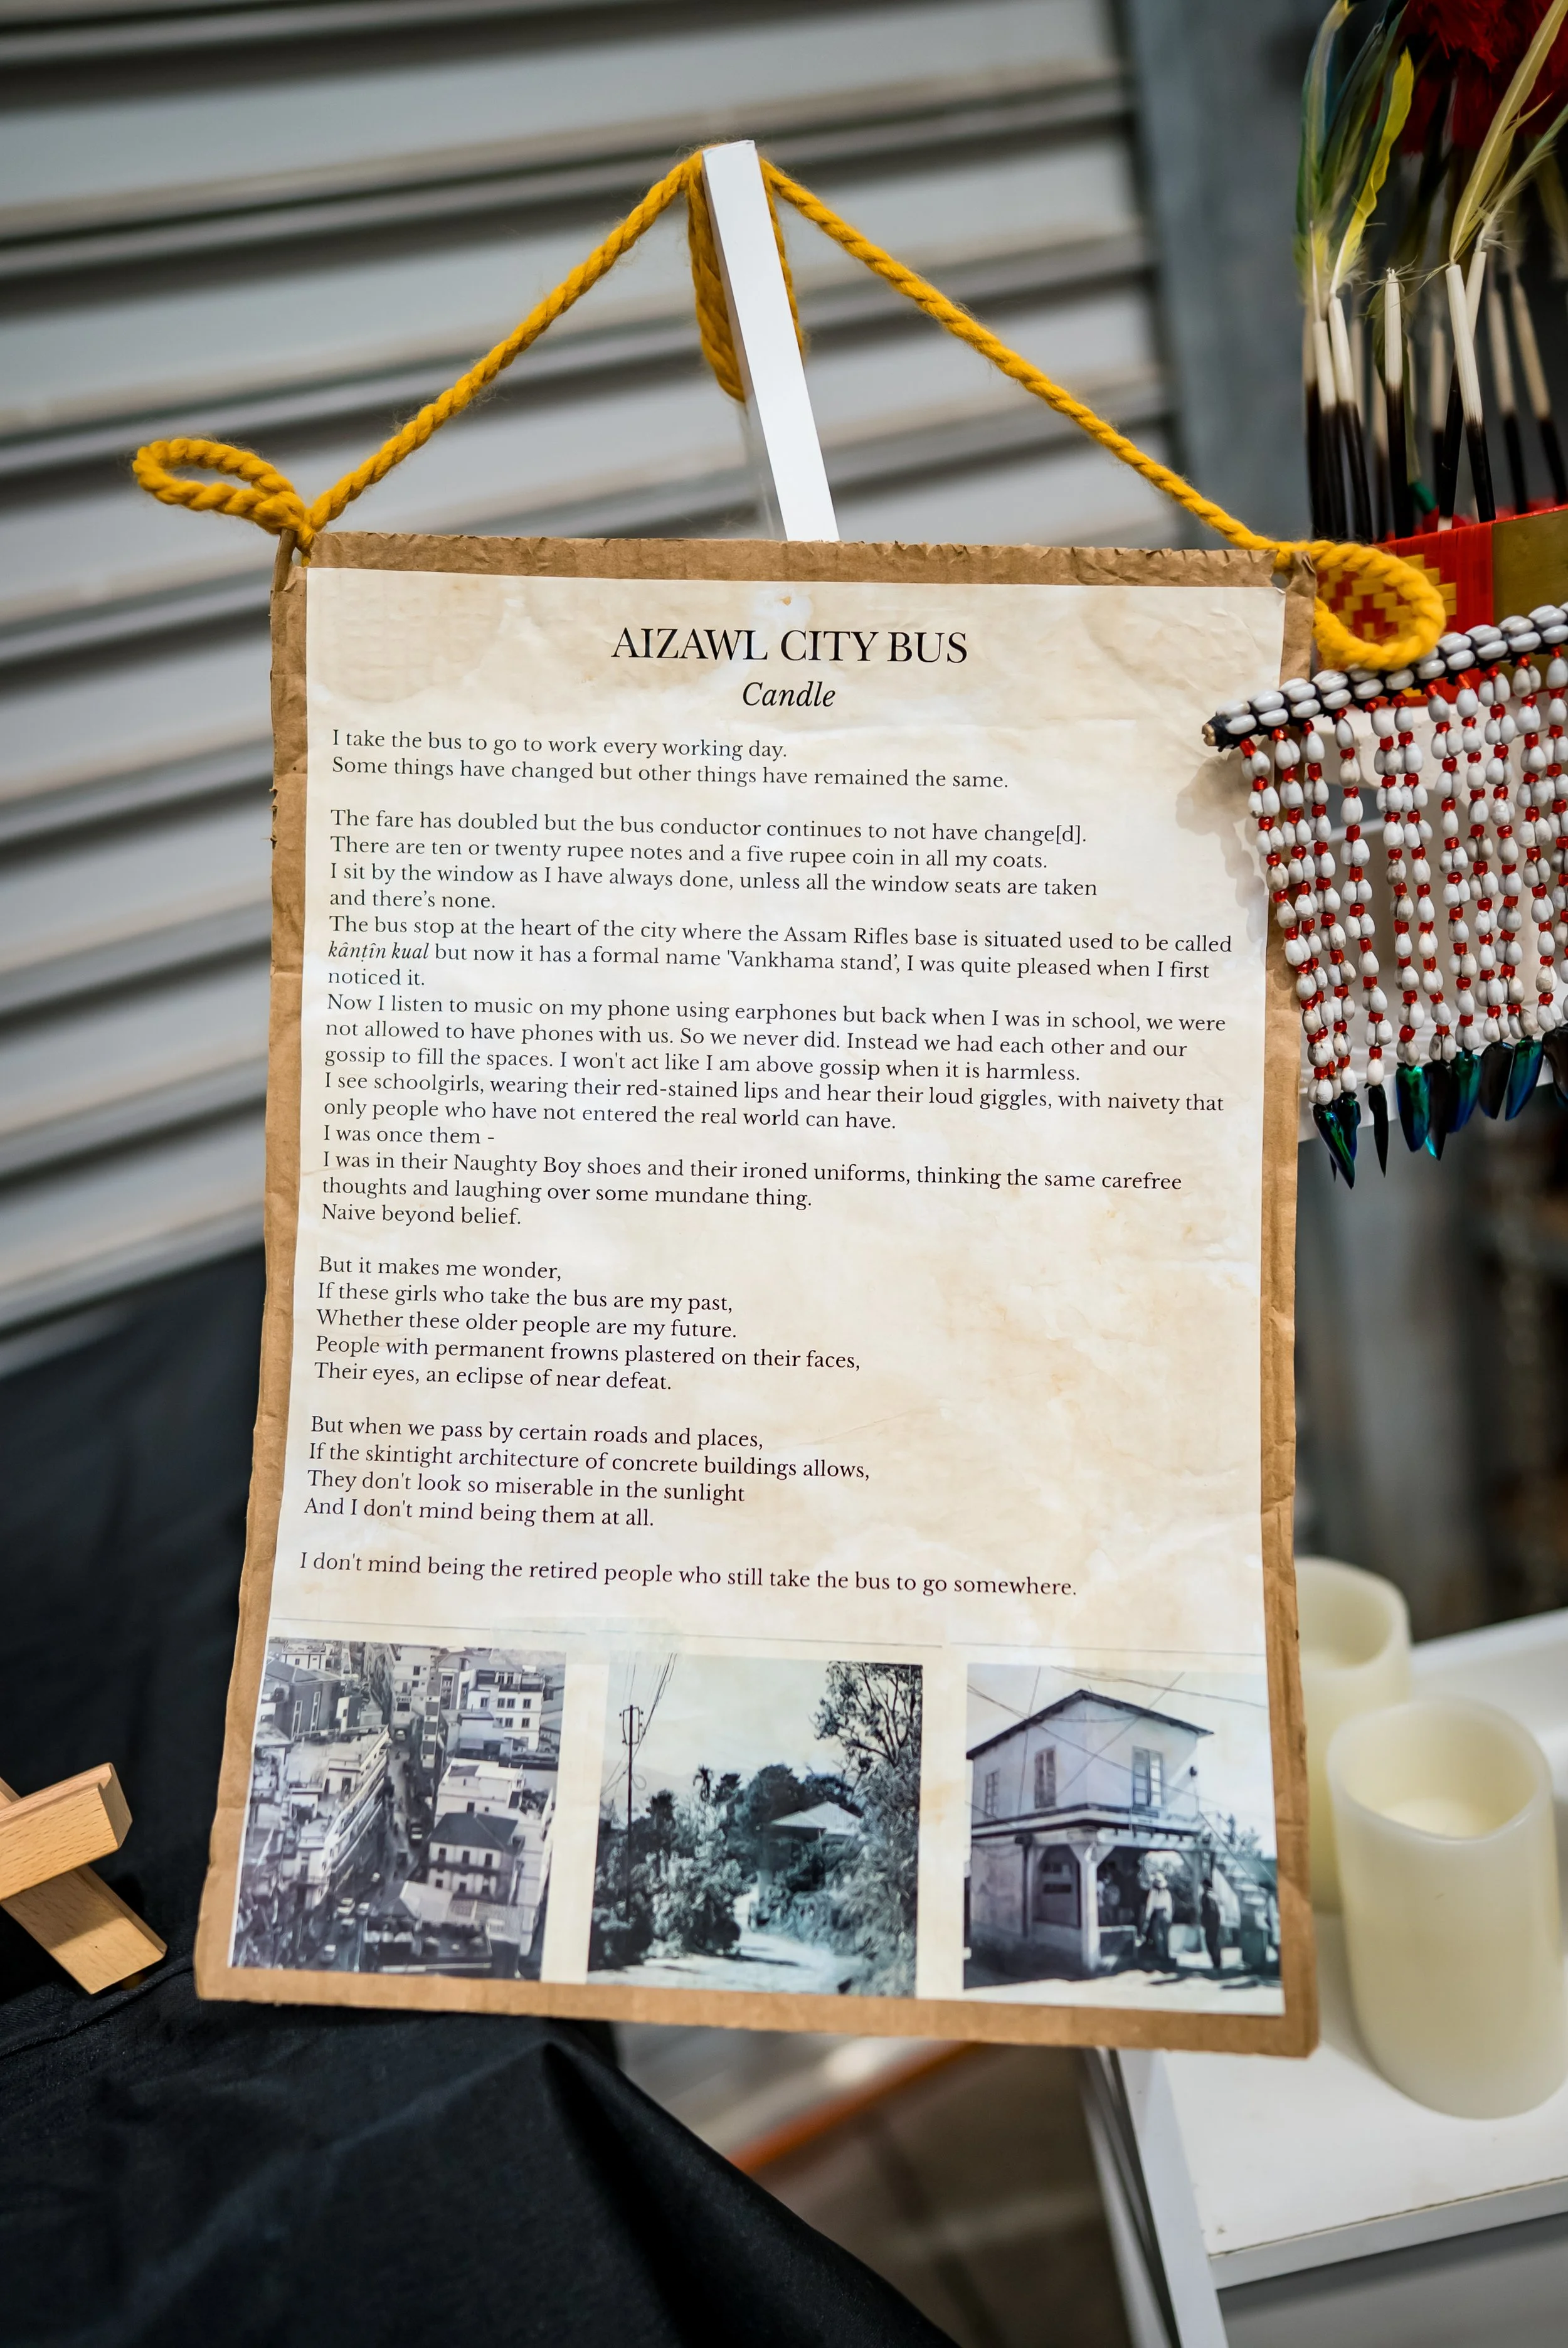 AIZAWL CITY BUS
Candle
I take the bus to go to work every working day.
Some things have changed but other things have remained the same.
The fare has doubled but the bus conductor continues to not have change[d].
There are ten or twenty rupee notes and a five rupee coin in all my coats.
I sit by the window as I have always done, unless all the window seats are taken
and there’s none.
The bus stop at the heart of the city where the Assam Rifles base is situated used to be called
kânṭîn kual but now it has a formal name 'Vankhama stand’, I was quite pleased when I first
noticed it.
Now I listen to music on my phone using earphones but back when I was in school, we were
not allowed to have phones with us. So we never did. Instead we had each other and our
gossip to fill the spaces. I won't act like I am above gossip when it is harmless.
I see schoolgirls, wearing their red-stained lips and hear their loud giggles, with naivety that
only people who have not entered the real world can have.
I was once them -
I was in their Naughty Boy shoes and their ironed uniforms, thinking the same carefree
thoughts and laughing over some mundane thing.
Naive beyond belief.
But it makes me wonder,
If these girls who take the bus are my past,
Whether these older people are my future.
People with permanent frowns plastered on their faces,
Their eyes, an eclipse of near defeat.
But when we pass by certain roads and places,
If the skintight architecture of concrete buildings allows,
They don't look so miserable in the sunlight
And I don't mind being them at all.
I don't mind being the retired people who still take the bus to go somewhere.